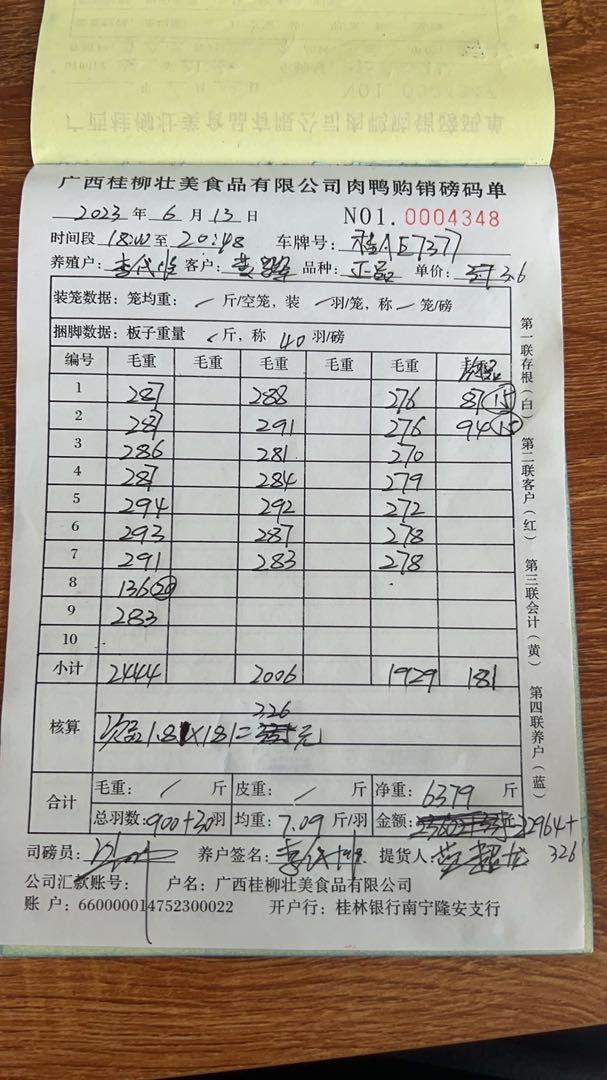 广西桂柳壮美食品有限公司肉鸭购销磅码单
2023 年 6 月 13 日 NO1. 0004348
时间段 18:00 至 20:48 车牌号: 桂AE7377
养殖户: 客户: 品种: 正品 单价: 3.6
装笼数据: 笼均重: / 斤/空笼, 装 / 羽/笼, 称 / 笼/磅
捆脚数据: 板子重量 / 斤, 称 40 羽/磅
编号 毛重 毛重 毛重 毛重 毛重
1 287 288 276 87 15
2 287 291 276 94 15
3 286 281 270
4 287 284 279
5 294 292 272
6 293 287 278
7 291 283 278
8 136 20
9 283
10
小计 2444 2006 1929 181
核算
326
次品1.8×181= 元
合计 毛重: / 斤 皮重: / 斤 净重: 6379 斤
总羽数: 900+30 羽 均重: 7.09 斤/羽 金额: 22964+
326
司磅员: 养户签名: 提货人:
公司汇款账号: 户名: 广西桂柳壮美食品有限公司
账 户: 660000014752300022 开户行: 桂林银行南宁隆安支行
第一联存根(白) 第二联客户(红) 第三联会计(黄) 第四联养户(蓝)